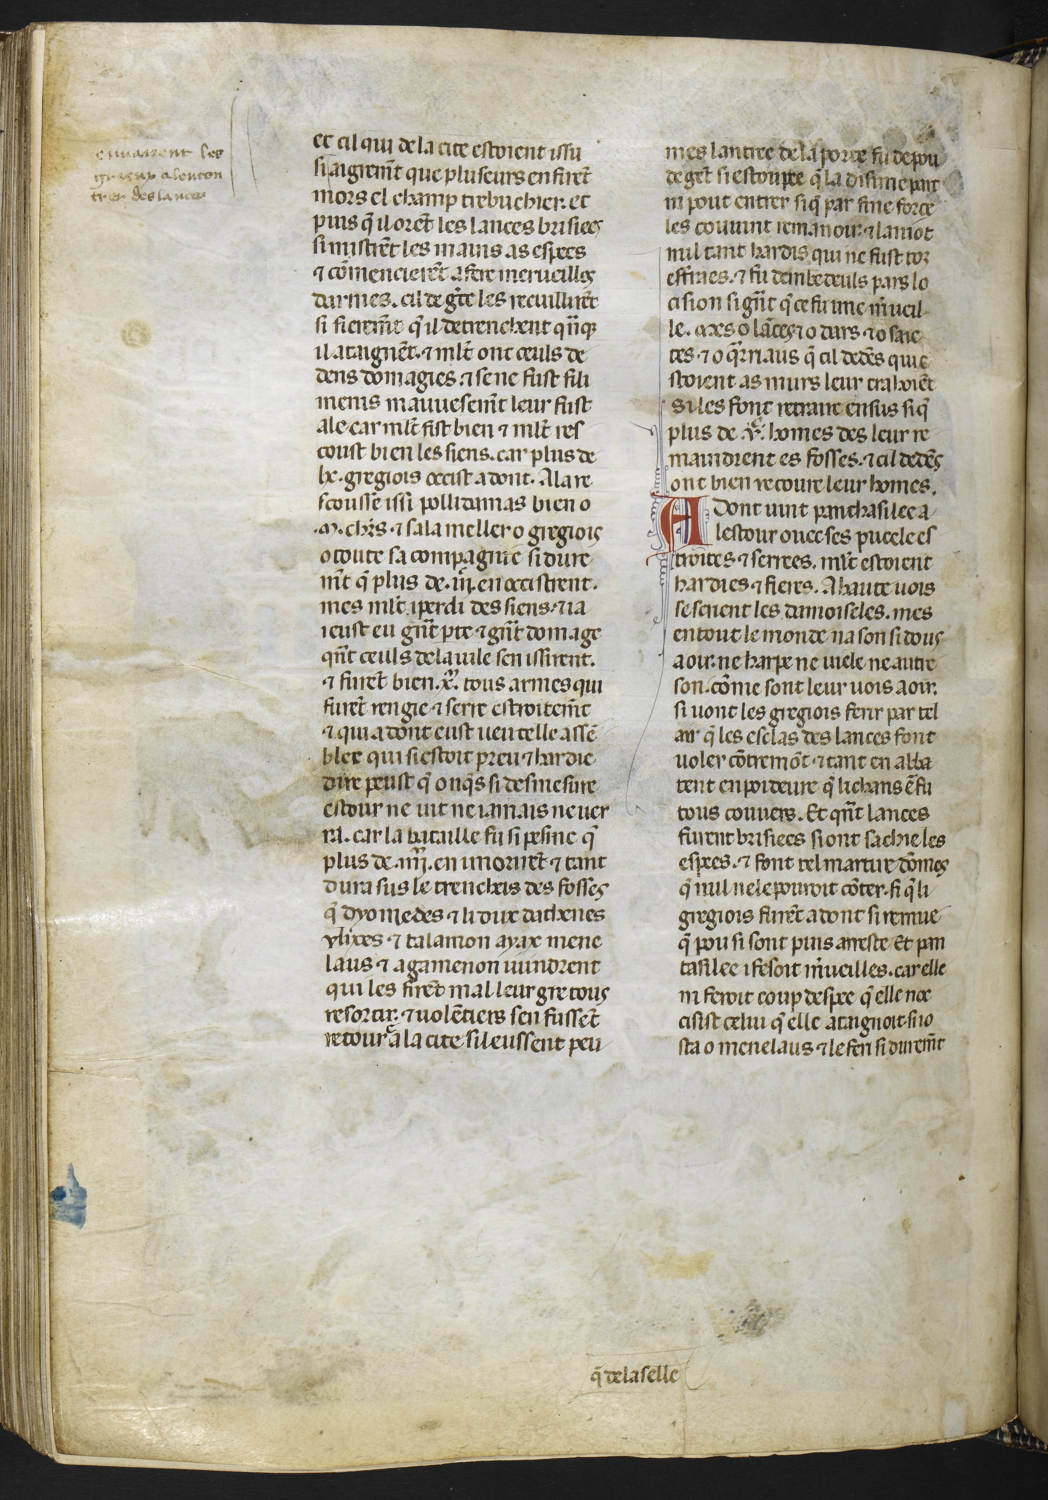 enuairent les
grieux alencon
trer des lances
et cil qui de la cite estoient issu
si aigremt que pluseurs en furet
mors el champ trebuchier. et
puis q̃ il oret les lances brisiees
si mistret les mains as espees
⁊ cõmencieret a fere merueilles
darmes. cil de gͣce les recuillirēt
si fierem̃t q̃ il detrenchent qͥnqͥ
il ataignēt. ⁊ ml̃t ont ceuls de
dens domagies. ⁊ se ne fust fili
menis mauuesem̃t leur fust
ale. car ml̃t fist bien ⁊ ml̃t res
coust bien les siens. car plus de
lx. gregiois occist adont. A la re
scousse issi pollidamas bien o
.M. chrs ⁊ sala meller o gregiois
o toute sa compagnie si dure
m̃t q̃ plus de .iii. en occistrent.
mes ml̃t i perdi des siens. ⁊ ia
i eust eu gñt pte ⁊ gñt domage
qñt ceuls de la uile sen issirent.
⁊ furet bien .x. tous armes qui
furet rengie ⁊ serre estroitem̃t
⁊ qui adont eust ueu telle assē
blee qui si estoit preu ⁊ hardie
dire peust q̃ onq̃s si desmesure
estour ne uit ne iamais ne uer
ra. car la bataille fu si pesme q̃
plus de .iiii. en i moruret ⁊ tant
dura sus le trencheis des fosses
q̃ dyomedes ⁊ li dux dathenes
vlixes ⁊ talamon ayax mene
laus ⁊ agamenon uindrent
qui les firet mal leur gre tous
resortir. ⁊ uolētiers sen fussēt
retour a la cite sil eussent peu
mes lantree de la porte fu depou
de gēt si estoupee q̃ la disime part
ni pout entrer si q̃ par fine force
les couuint remanoir. ⁊ laniot
nul tant hardis qui ne fust tor
effraes. ⁊ fu dembedeuls pars lo
cision si gñt q̃ ce fu une m̃ueil
le. Mes o lāces ⁊ o dars ⁊ o saie
tes ⁊ o q̃rriaus q̃ cil dedēs qui e
stoient as murs leur traioiēt
si les font retraire ensus si q̃
plus de .v. homes des leur re
maindrent es fosses. ⁊ cil dedēs
ont bien recoure leur homes.
A Dont uint panthasilee a
lestour ouec ses puceles es
troites ⁊ serrees. ml̃t estoient
hardies ⁊ fieres. A haute uois
sescrient les damoiseles. mes
en tout le monde na son si dous
a oir. ne harpe ne uiele ne autre
son. cõme sont leur uois a oir.
si uont les gregiois ferir par tel
air q̃ les esclas des lances font
uoler cõtremōt ⁊ tant en abba
tent en poi deure q̃ li chans ē fu
tous couuers. Et qñt lances
furent brisiees si ont sachie les
espees. ⁊ font tel martire dōmes
q̃ nul ne le pouroit cōter. si q̃ li
gregiois furēt adont si remue
q̃ pou si sont puis arreste Et pan
tasilee i fesoit m̃ueilles. car elle
ni feroit coup despee q̃ elle noc
cisist celui q̃ elle ataignoit. si io
sta o menelaus ⁊ le feri si durem̃t
q̃ de la selle